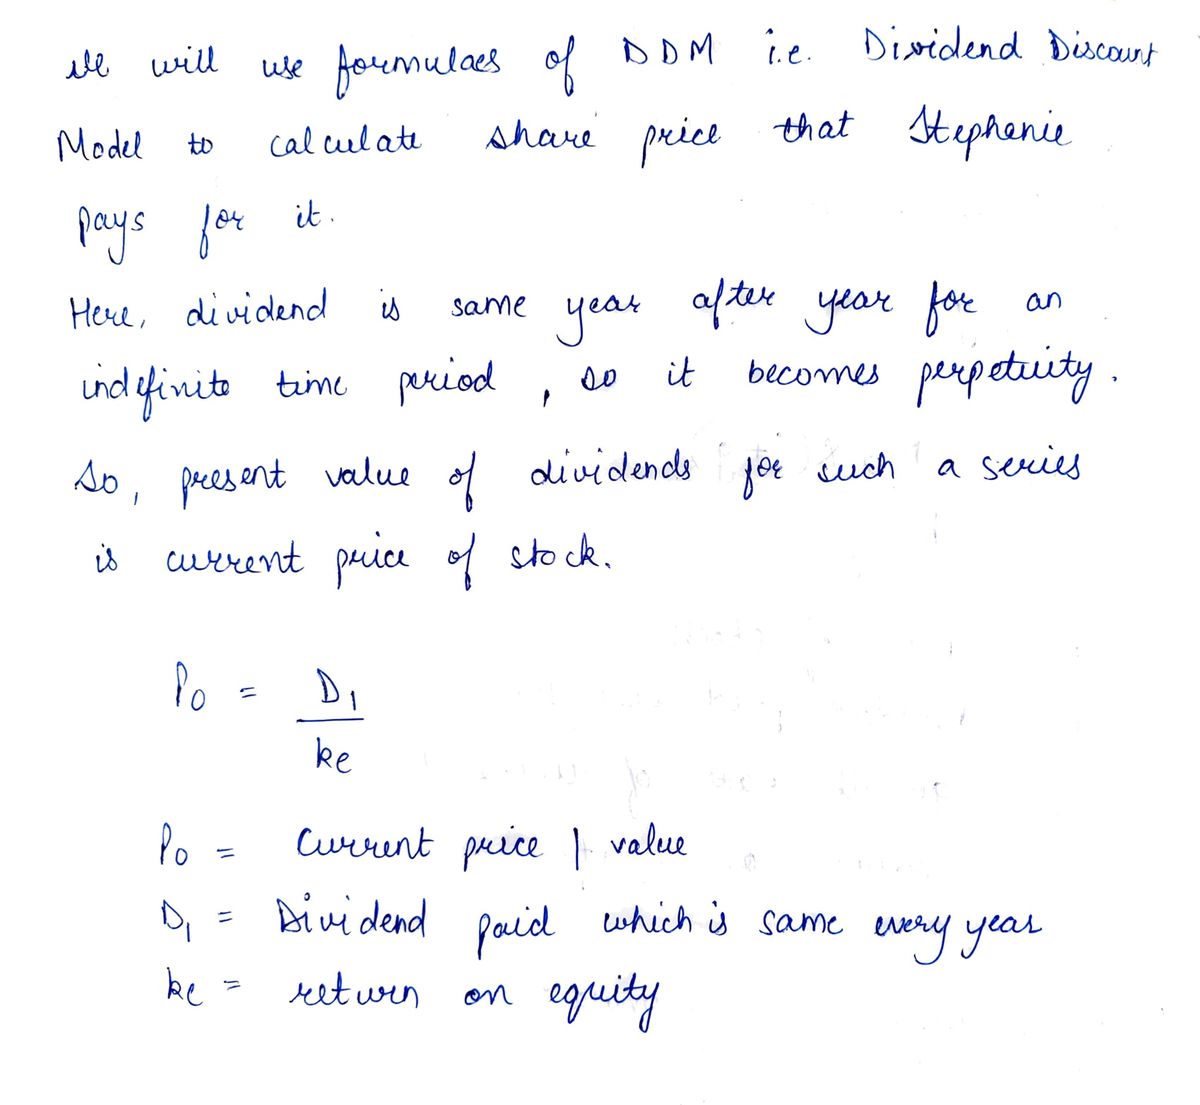 We will use formulaes of DDM i.e. Dividend Discount
Model to calculate share price that Stephanie
pays for it.
Here, dividend is same year after year for an
indefinite time period, so it becomes perpetuity.
So, present value of dividends for such a series
is current price of stock.
P0 = D1
ke
P0 = Current price / value
D1 = Dividend paid which is same every year
ke = return on equity